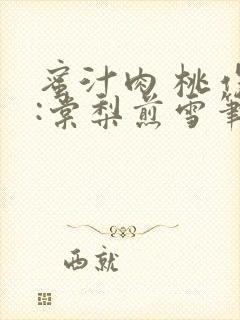 蜜汁肉桃作
:棠梨煎雪笔
西就